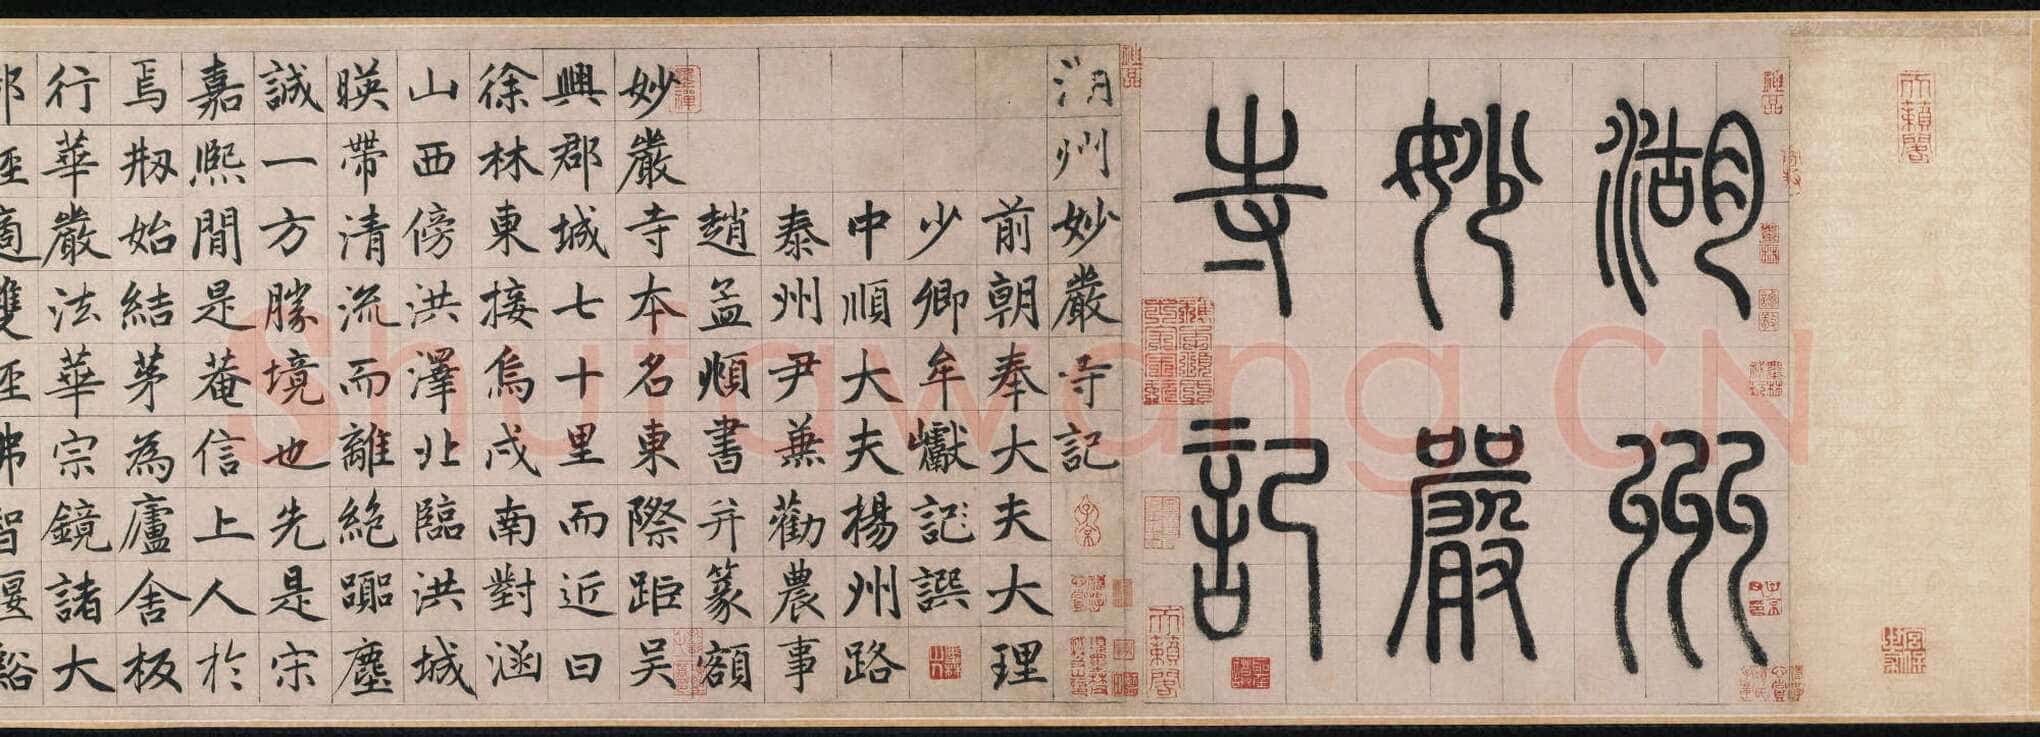 湖州
妙嚴
寺記
湖州妙嚴寺記
前朝奉大夫大理
少卿牟巘記譔
中順大夫楊州路
泰州尹兼勸農事
趙孟頫書并篆額
妙嚴寺本名東際距吳
興郡城七十里而近曰
徐林東接烏戍南對涵
山西傍洪澤北臨洪城
暎帶清流而離絶躢塵
誠一方勝境也先是宋
嘉熈閒是菴信上人於
焉剏始結茅為廬舍板
行華嚴法華宗鏡諸大
Shufawang.CN